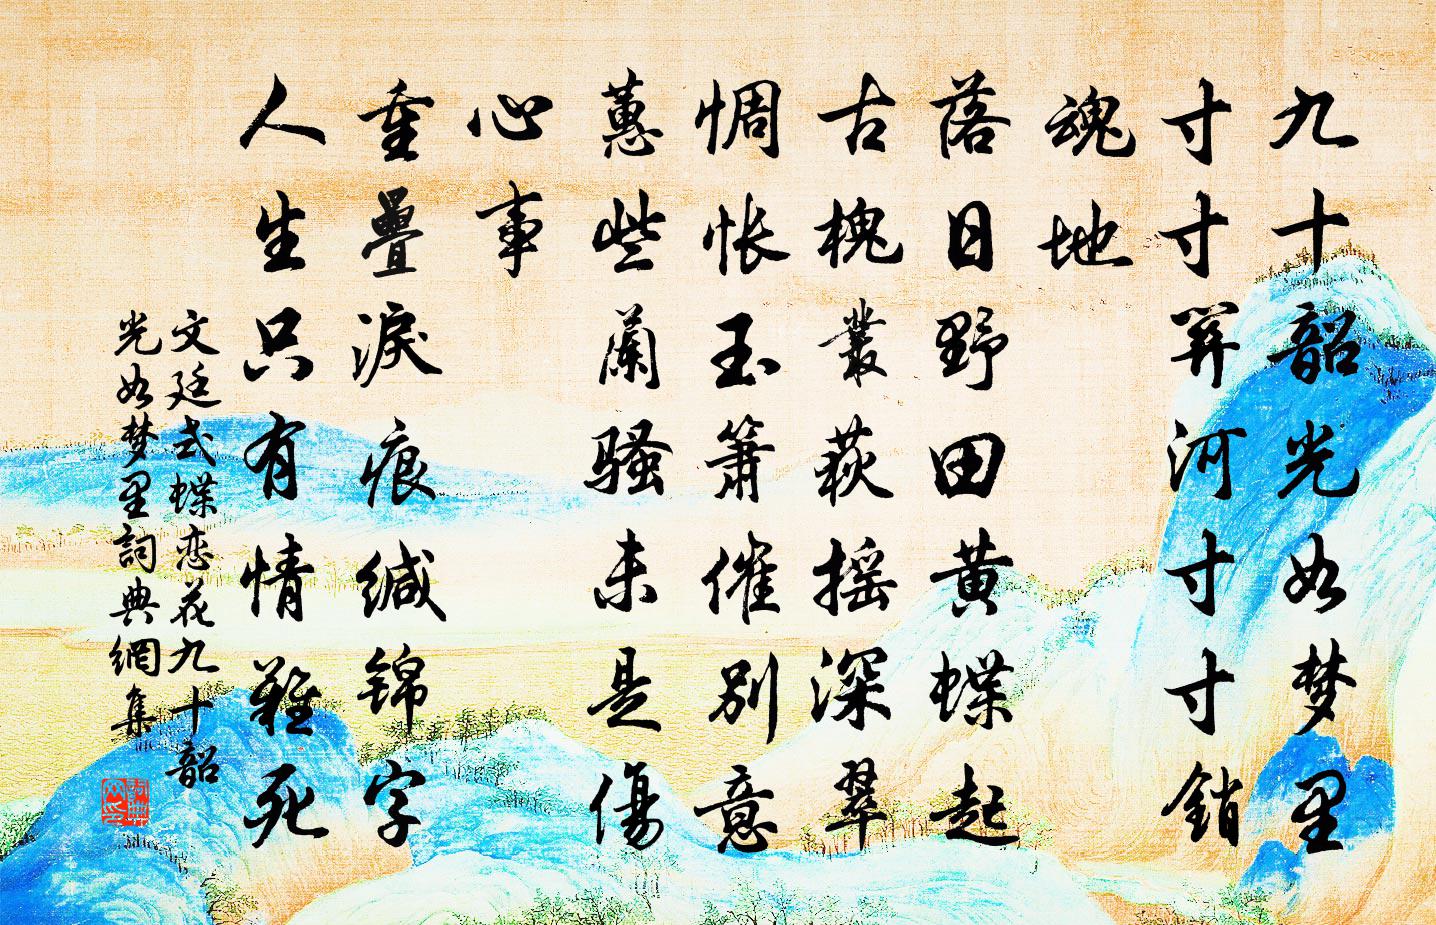 九十韶光如梦里
寸寸关河寸寸銷
魂地
落日野田黄蝶起
古槐叢荻摇深翠
惆怅玉箫催别意
蕙些蘭骚未是傷
心事
重疊淚痕缄锦字
人生只有情難死
文廷式蝶恋花九十韶
光如梦里詞典網集